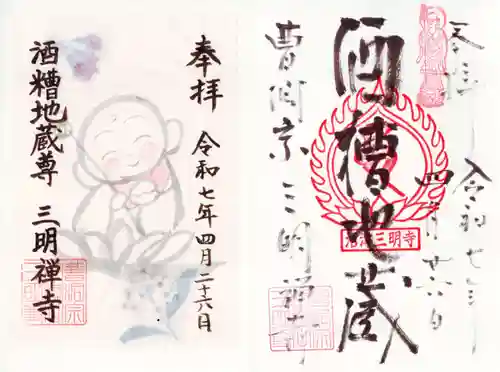 奉拝
令和七年四月二十六日
酒糟地蔵尊
三明禅寺
奉拝
令和七年
四月廿六日
酒糟地蔵
曹洞宗三明禅寺
沼津三明寺